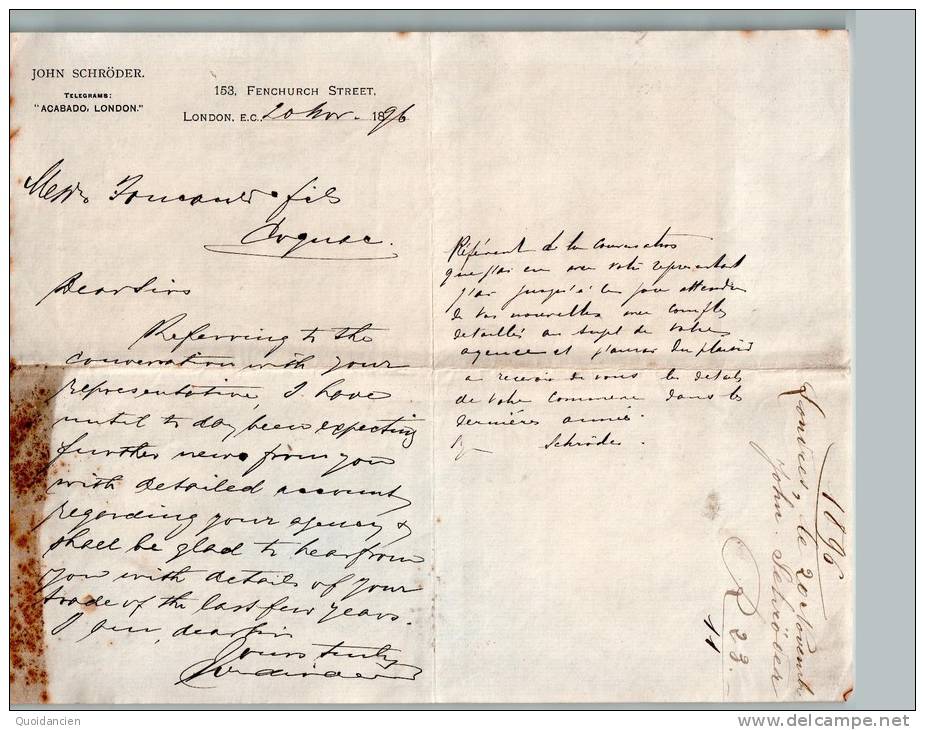 JOHN SCHRÖDER.
TELEGRAMS:
"ACABADO, LONDON."
153, FENCHURCH STREET,
LONDON, E.C. 20 Nov. 1896
Messrs Foucauld & fils
Cognac.
Dear Sirs
Referring to the
conversation with your
representative, I have
until to day been expecting
further news from you
with detailed account
regarding your agency &
shall be glad to hear from
you with details of your
trade of the last few years.
I am, dear Sir
Yours truly
Référent de la conversation
que j'ai eue avec votre représentant
j'ai jusqu'à ce jour attendu
de vos nouvelles avec comptes
detaillés au sujet de votre
agence et j'aurai du plaisir
a recevoir de vous les details
de votre commerce dans les
dernières années
Schröder.
1896
Londres, le 20 Novembre
John. Schröder
R 23.
11
Quoidancien
delcampe.net